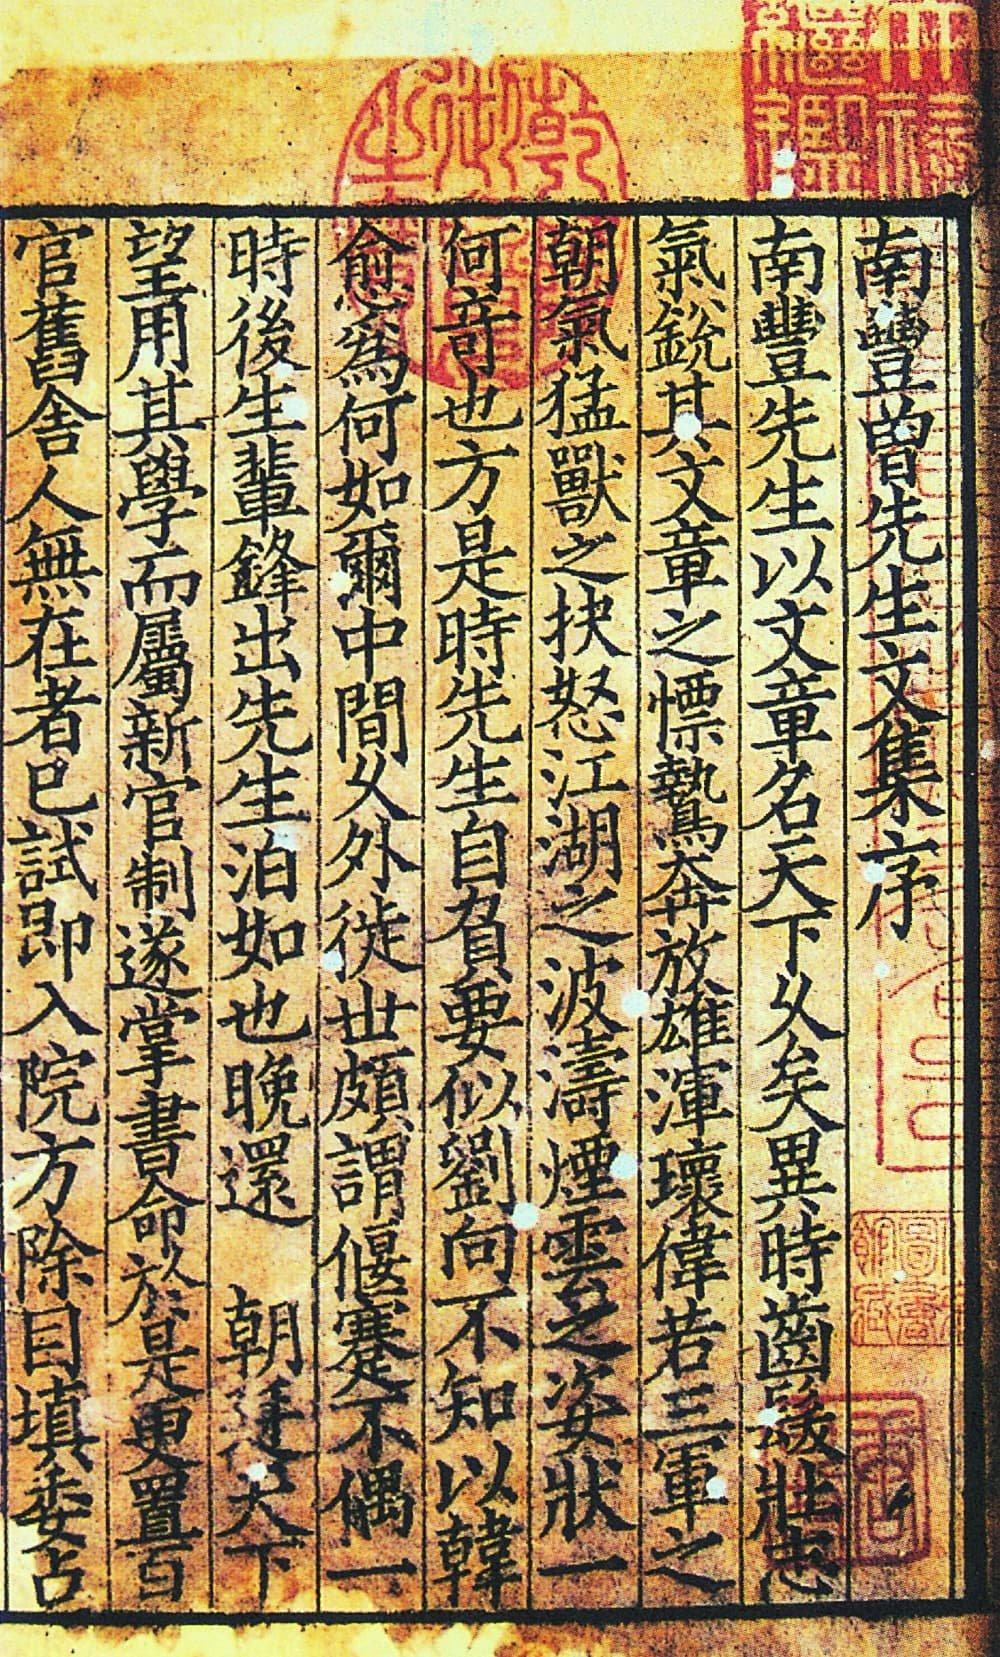 南豐曾先生文集序
南豐先生以文章名天下久矣異時齒髮壯志
氣銳其文章之慓鷙奔放雄渾瓌偉若三軍之
朝氣猛獸之抉怒江湖之波濤煙雲之姿狀一
何竒也方是時先生自負要似劉向不知以韓
愈爲何如爾中間乆外徙世頗謂偃蹇不偶一
時後生輩鋒出先生泊如也晚還 朝廷天下
望用其學而屬新官制遂掌書命於是更置百
官舊舍人無在者已試即入院方除目填委占